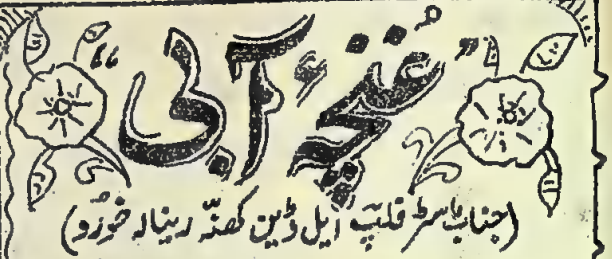 ”غنچۂ آبی“
(جناب ماسٹر فلپ ایل ڈین کھنّہ رینالہ خورد)